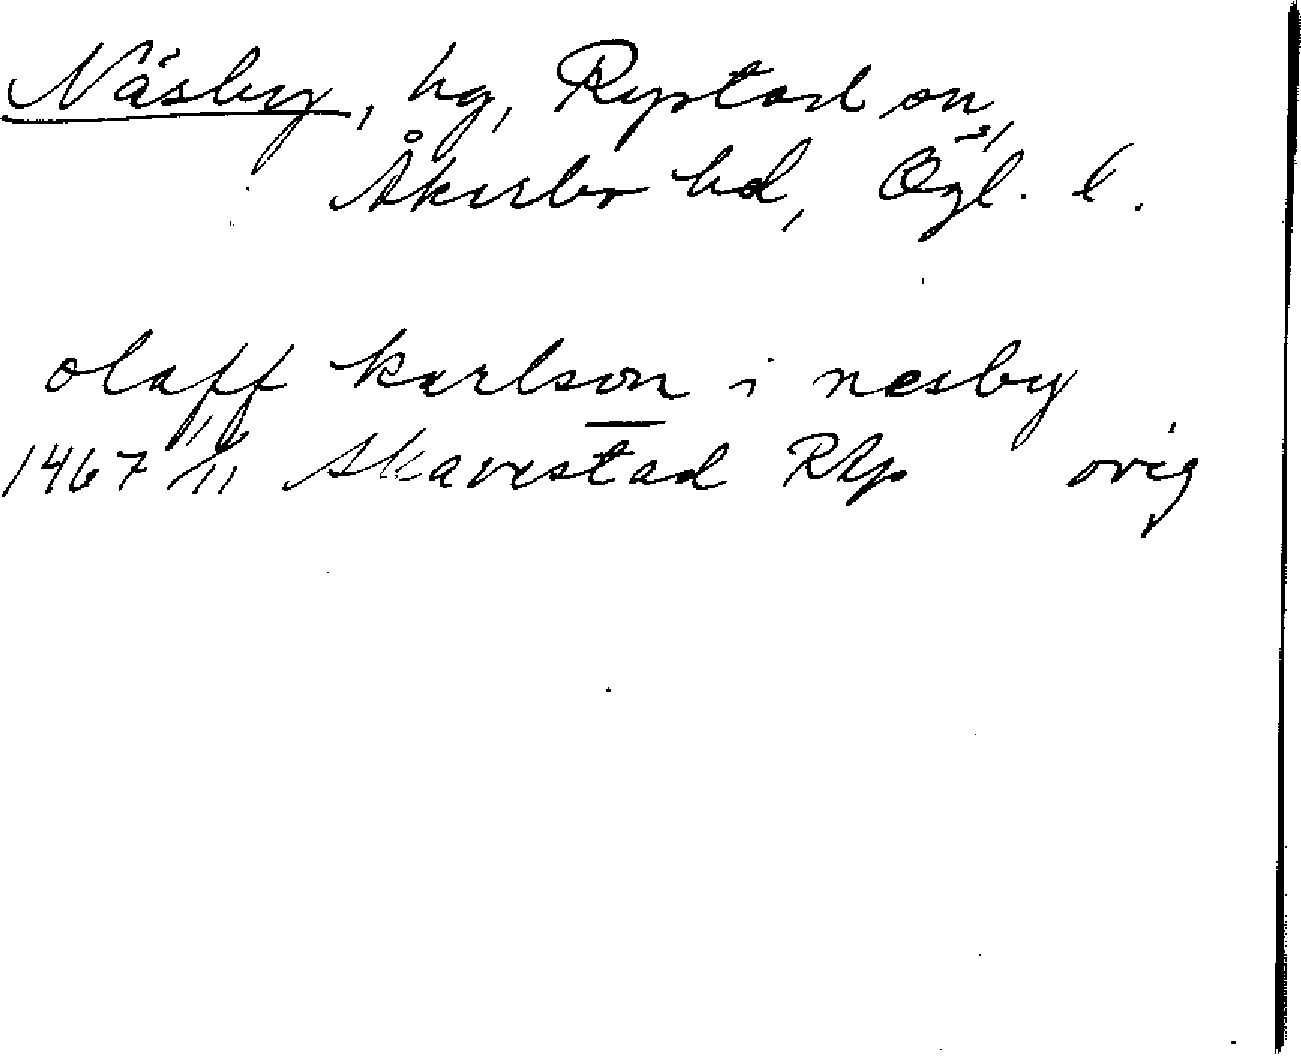 Näsby, hg, Rystad sn,
Åkerbo hd, Ögl. l.
olaff karlson i næsby
1467 11/11 Skavestad RAp orig